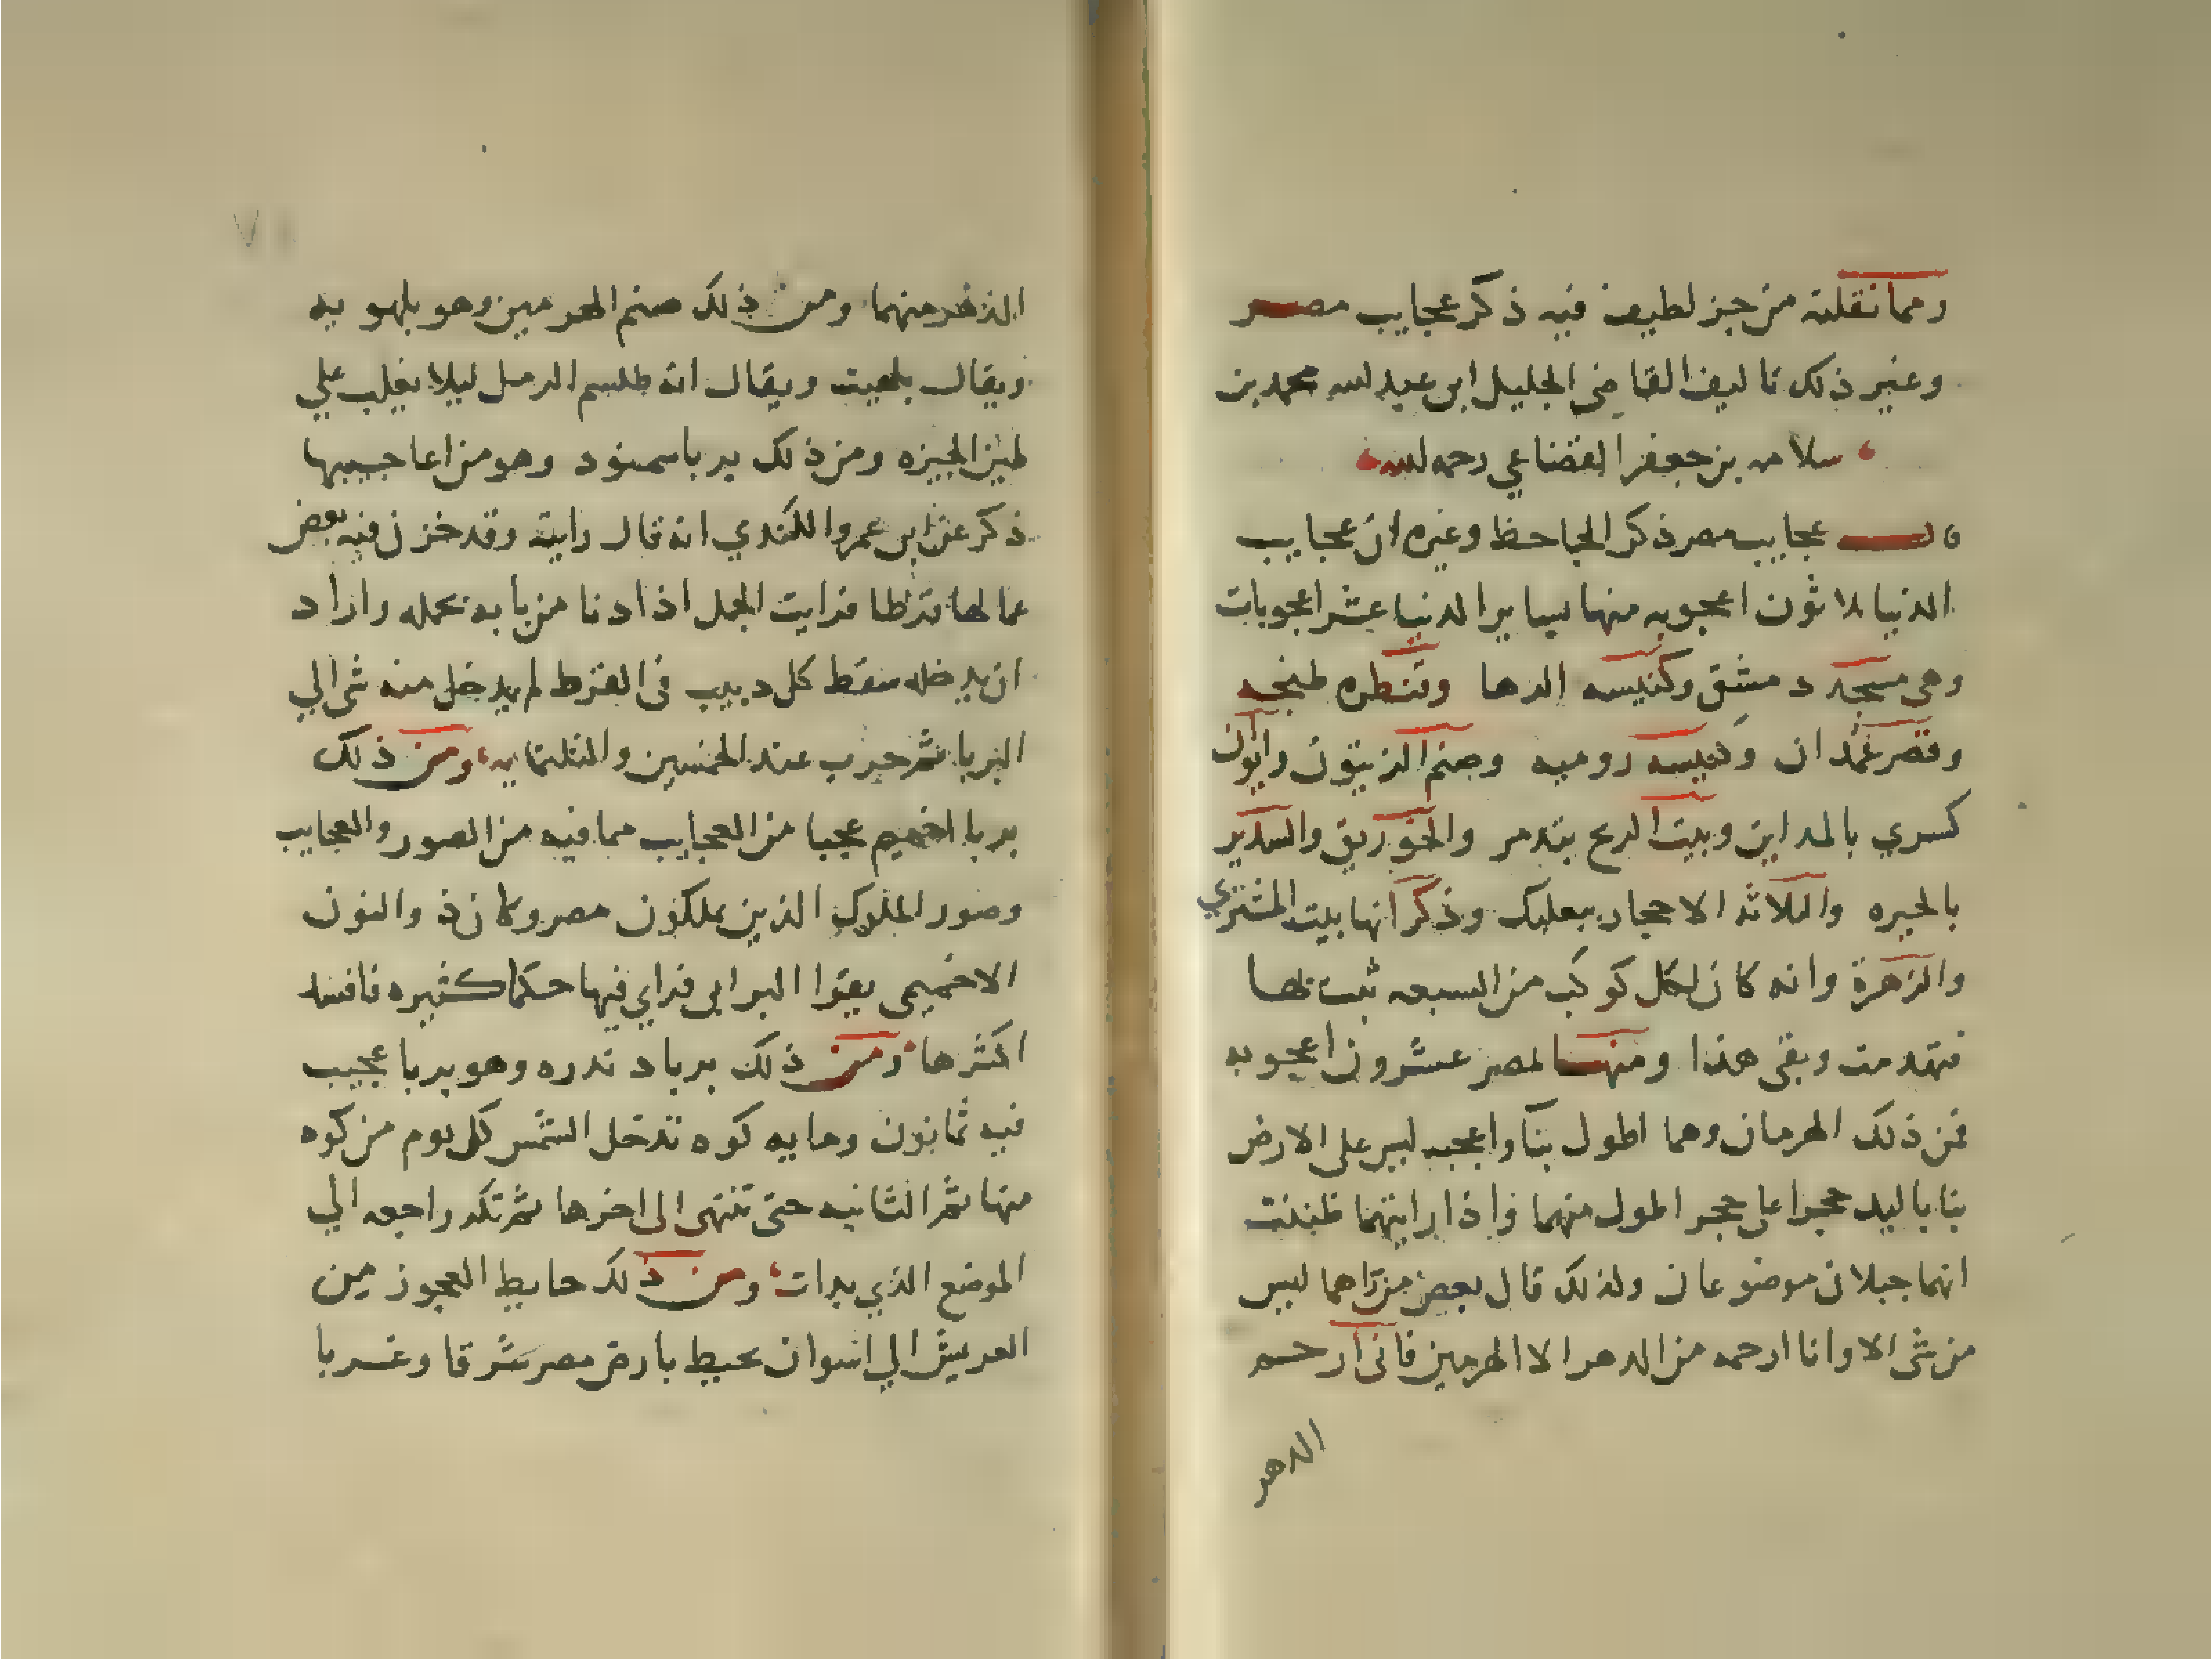 ومما نقلته من جز لطيف فيه ذكر عجايب مصر
وغير ذلك تاليف القاضى الجليل ابن عبد لله محمد بن
سلامه بن جعفر القضاعي رحمه لله
عجايب مصر ذكر الجاحظ وغيره ان عجايب
الدنيا ثلاثون اعجوبه منها بساير الدنيا عشر اعجوبات
وهى مسجد دمشق وكنيسه الرها وقنطره طنجه
وقصر غمدان وكنيسه روميه وصنم الزيتون وايوان
كسري بالمداين وبيت الريح بتدمر والخورنق والسدير
بالحيره والثلاثه الاحجار ببعلبك وذكر انها بيت المشتري
والزهرة وانه كان لكل كوكب من السبعه بيت بها
فتهدمت وبقى هذا ومنها لمصر عشرون اعجوبه
فمن ذلك الهرمان وهما اطول بنآ واعجبه ليس على الارض
بنا باليد حجرا على حجر اطول منهما واذا رايتهما ظننت
انهما جبلان موضوعان ولذلك قال بعض من راهما ليس
من شى الا وانا ارحمه من الدهر الا الهرمين فانى ارحم
الدهر
٧١
الدهر منهما ومن ذلك صنم الهرمين وهو بلهو به
ويقال بلهيت ويقال انه طلسم الرمل ليلا يغلب علي
طين الجيزه ومن ذلك بربا سمنود وهو من اعاجيبها
ذكر عن ابى عمروا الكندي انه قال رايته وقد خزن فيه بعض
عمالها قرطا فرايت الجمل اذا دنا من بابه بحمله واراد
ان يدخله سقط كل دبيب فى القرط لم يدخل منه شى الي
البربا ثم خرب عند الخمسين والثلثمايه ومن ذلك
بربا اخميم عجبا من العجايب مما فيه من الصور والعجايب
وصور الملوك الذين يملكون مصر وكان ذو النون
الاخميمى يقرا البرابى فراي فيها حكما كثيره فافسد
اكثرها ومن ذلك بربا دندره وهو بربا عجيب
فيه ثمانون ومايه كوه تدخل الشمس كل يوم من كوه
منها ثم الثانيه حتى تنتهى الى اخرها ثم تكر راجعه الي
الموضع الذي بدات ومن ذلك حايط العجوز من
العريش الي اسوان محيط بارض مصر شرقا وغربا